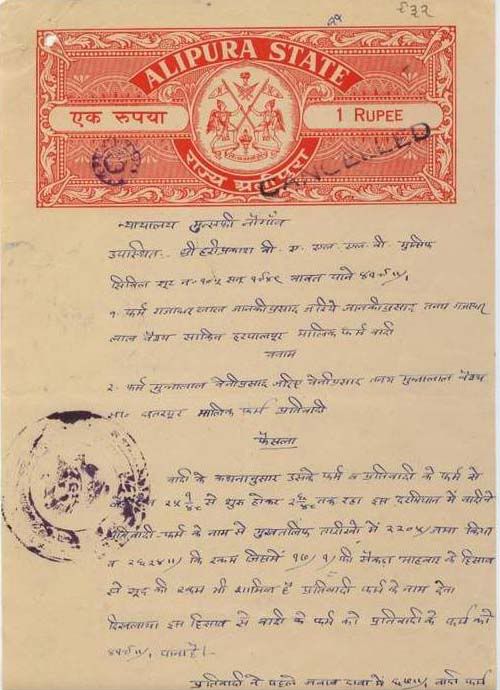 ६३२
ALIPURA STATE
एक रुपया
1 RUPEE
राज्य अलीपुरा
CANCELLED
न्यायालय मुन्सफी नौगाँव
उपस्थित:- श्री हरीप्रकाश बी. ए. एल. एल. बी. मुंसिफ
सिविल सूट न० १०५ सन् १९४९ बाबत पाने
१. फर्म गजाधर लाल जानकीप्रसाद जरिये जानकीप्रसाद तनय गजाधर
लाल वैश्य साकिन हरपालपूर मालिक फर्म वादी
बनाम
२. फर्म मुन्नालाल बेनीप्रसाद जरिए बेनीप्रसाद तनय मुन्नालाल वैश्य
सा० छतरपूर मालिक फर्म प्रतिवादी
फैसला
वादी के कथनानुसार उसके फर्म व प्रतिवादी के फर्म से
से शुरू होकर तक रहा इस दरमियान में वादीने
प्रतिवादी फर्म के नाम से मुखतलिफ तारीखों में जमा किया
व कि रकम जिसमें की सैंकड़ा माहवार के हिसाब
से सूद की रकम भी शामिल है प्रतिवादी फर्म के नाम देना
दिखलाया इस हिसाब से वादी के फर्म को प्रतिवादी के फर्म को
पाना है।-
प्रतिवादी ने पहले जवाब दावा में वादी फर्म